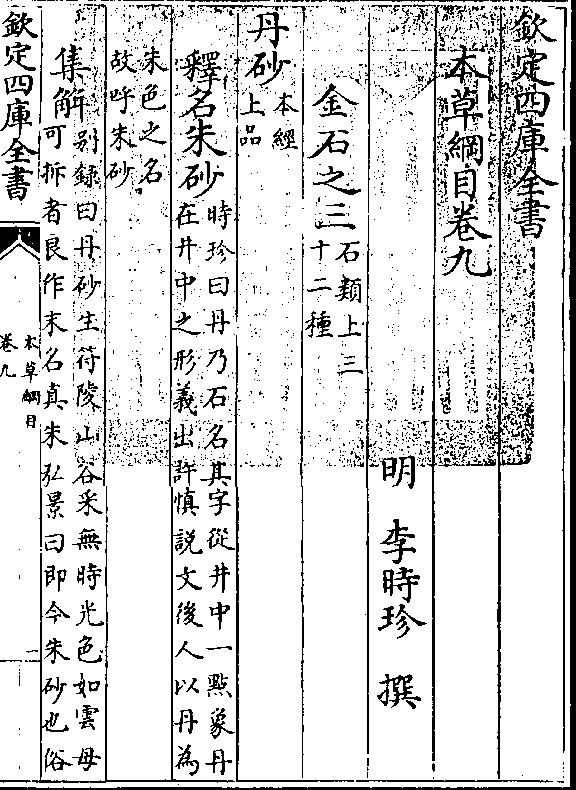 欽定四庫全書
本草綱目卷九
明 李時珍 撰
金石之三石類上三
十二種
丹砂本經
上品
釋名朱砂時珍曰丹乃石名其字從井中一點象丹
在井中之形義出許慎説文後人以丹為
朱色之名
故呼朱砂
集解别録曰丹砂生符陵山谷采無時光色如雲母
可拆者良作末名真朱弘景曰即今朱砂也俗
欽定四庫全書
本草綱目
卷九
一